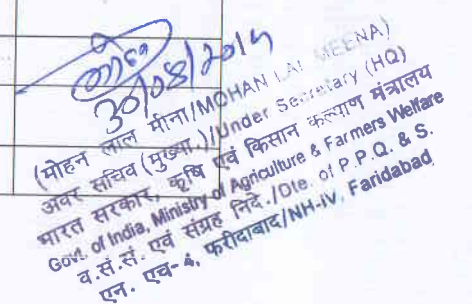 30/08/2017
(मोहन लाल मीना/MOHAN LAL MEENA)
अवर सचिव (मुख्या.)/Under Secretary (HQ)
भारत सरकार, कृषि एवं किसान कल्याण मंत्रालय
Govt. of India, Ministry of Agriculture & Farmers Welfare
व.सं.सं. एवं संग्रह निदे./Dte. of P.P.Q. & S.
एन. एच- 4, फरीदाबाद/NH-IV, Faridabad